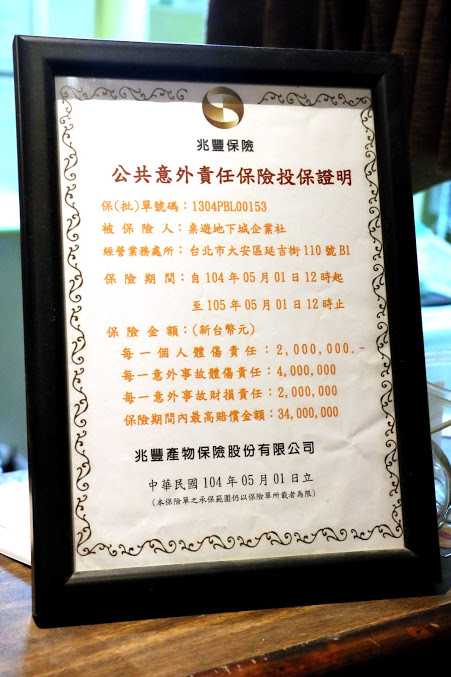 兆豐保險
公共意外責任保險投保證明
保(批)單號碼：1304PBL00153
被保險人：桌遊地下城企業社
經營業務處所：台北市大安區延吉街110號B1
保險期間：自104年05月01日12時起
至105年05月01日12時止
保險金額：(新台幣元)
每一個人體傷責任：2,000,000.-
每一意外事故體傷責任：4,000,000
每一意外事故財損責任：2,000,000
保險期間內最高賠償金額：34,000,000
兆豐產物保險股份有限公司
中華民國104年05月01日立
(本保險單之承保範圍仍以保險單所載者為限)